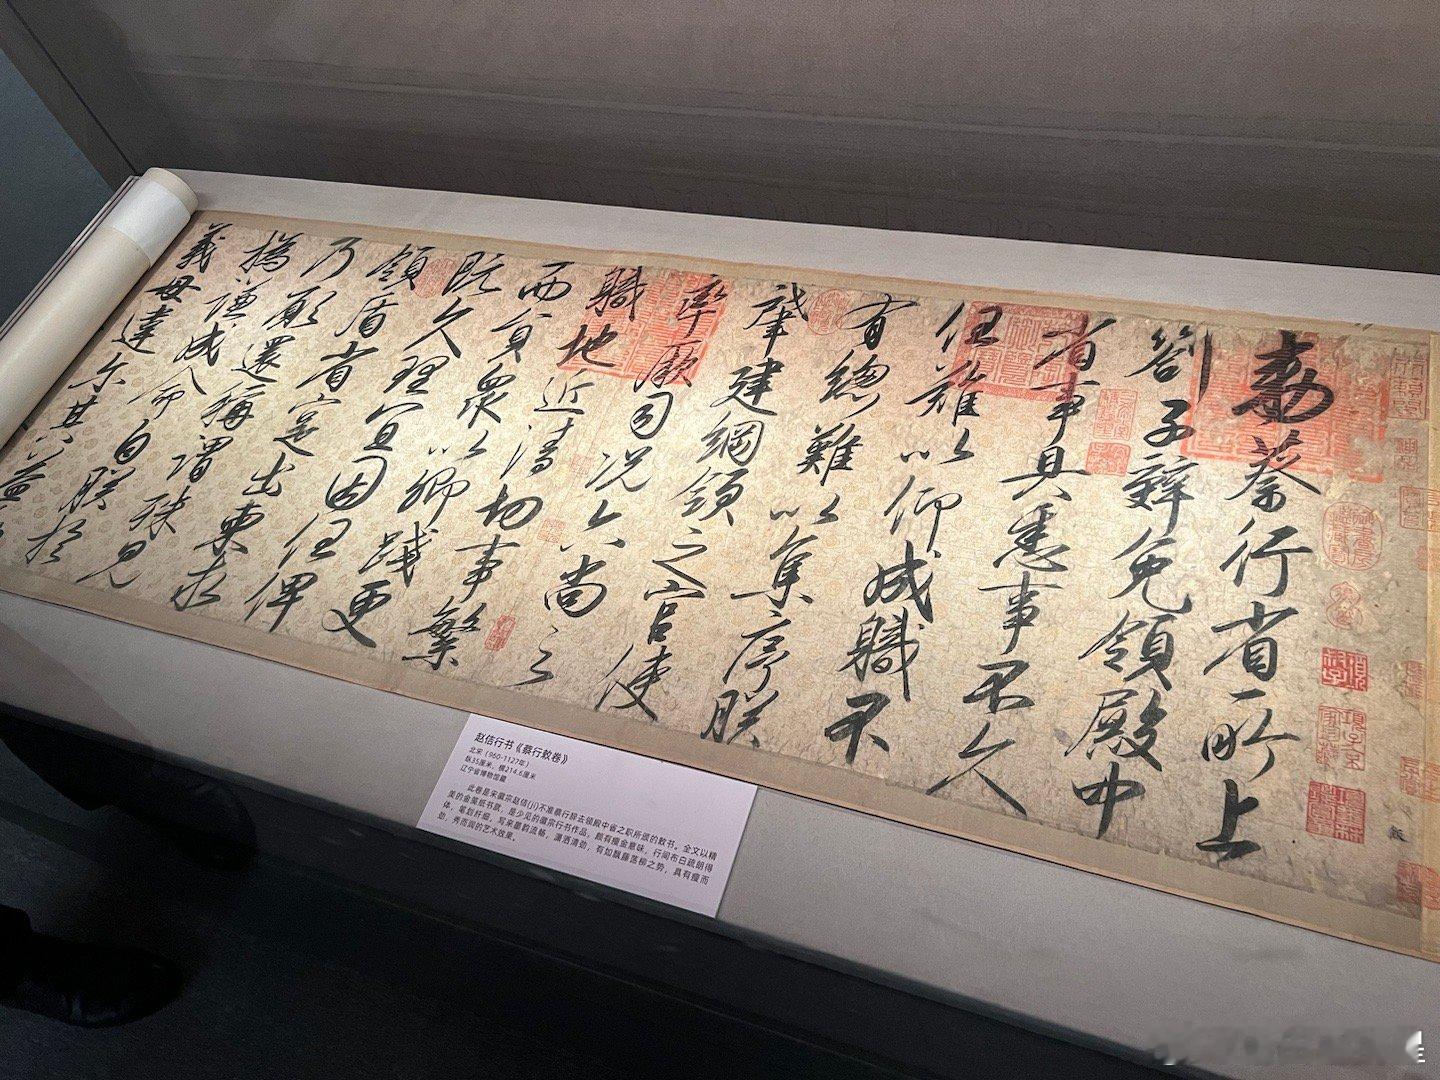 敕蔡行省所上
劄子辭免領殿中
省事具悉事不久
任難以仰成職不
有總難以集序朕
肇建綱領之官使
率厥司況六尚之
職地近清切事繁
而員衆以卿踐更
既久理宜因任俾
領盾省寔出柬求
乃願還稱謂殊見
撝謙成命自朕於
義毋違尔其益
赵佶行书《蔡行敕卷》
北宋（960-1127年）
纵35厘米，横214.6厘米
辽宁省博物馆藏
此卷是宋徽宗赵佶(jí)不准蔡行辞去领殿中省之职所颁的敕书。全文以精
美的金笺纸书就，是少见的徽宗行书作品，颇有瘦金意味，行间布白疏朗得
体，笔划纤细，写来墨韵流畅，潇洒清劲，有如飘藤荡柳之势，具有瘦而
劲、秀而润的艺术效果。